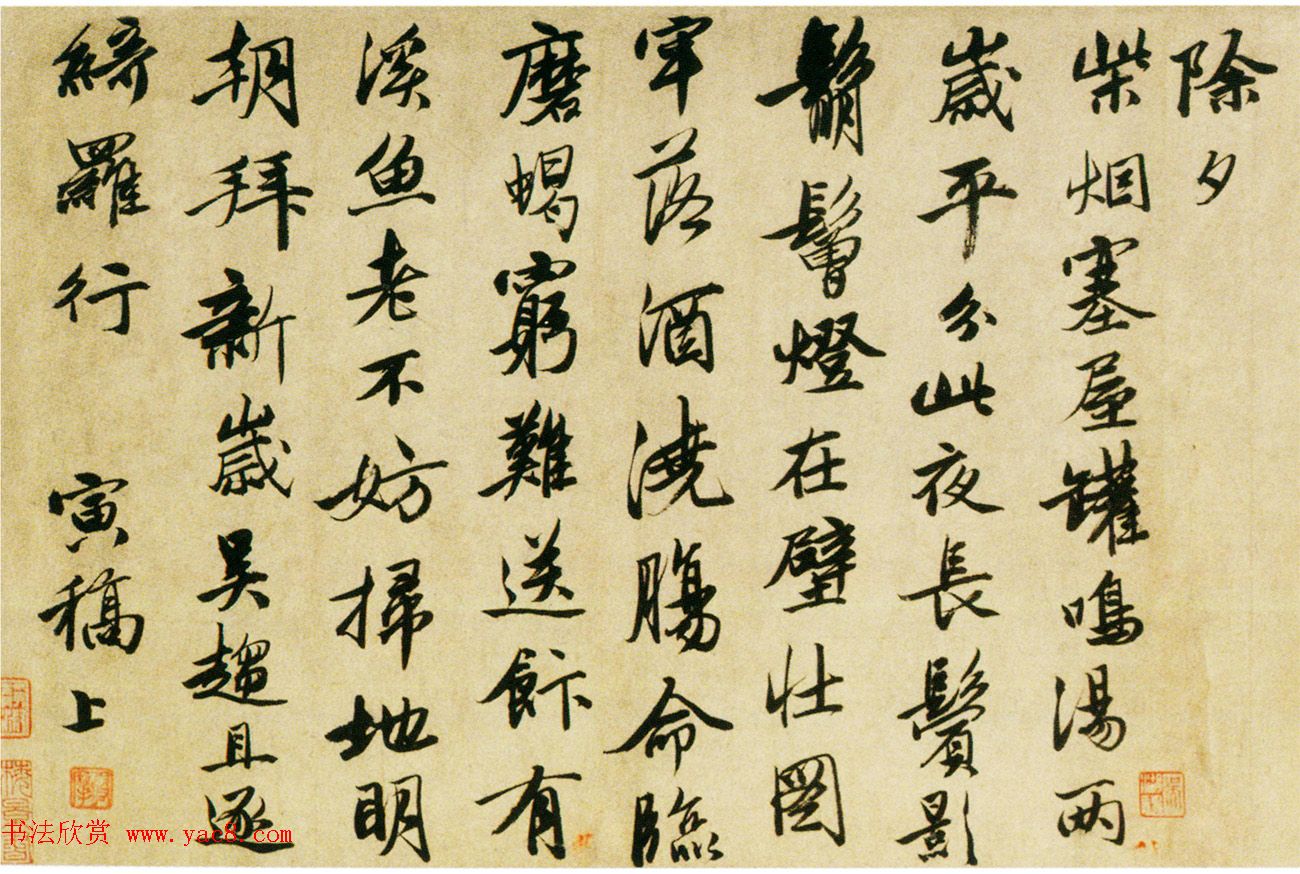 除夕
柴烟塞屋罐鳴湯两
歲平分此夜長鬢影
鬅鬙燈在壁壮圖
牢落酒澆腸命臨
磨蝎窮難送飰有
溪魚老不妨掃地明
朝拜新歲吴趨且逐
綺羅行 寅稿上
书法欣赏 www.yac8.com